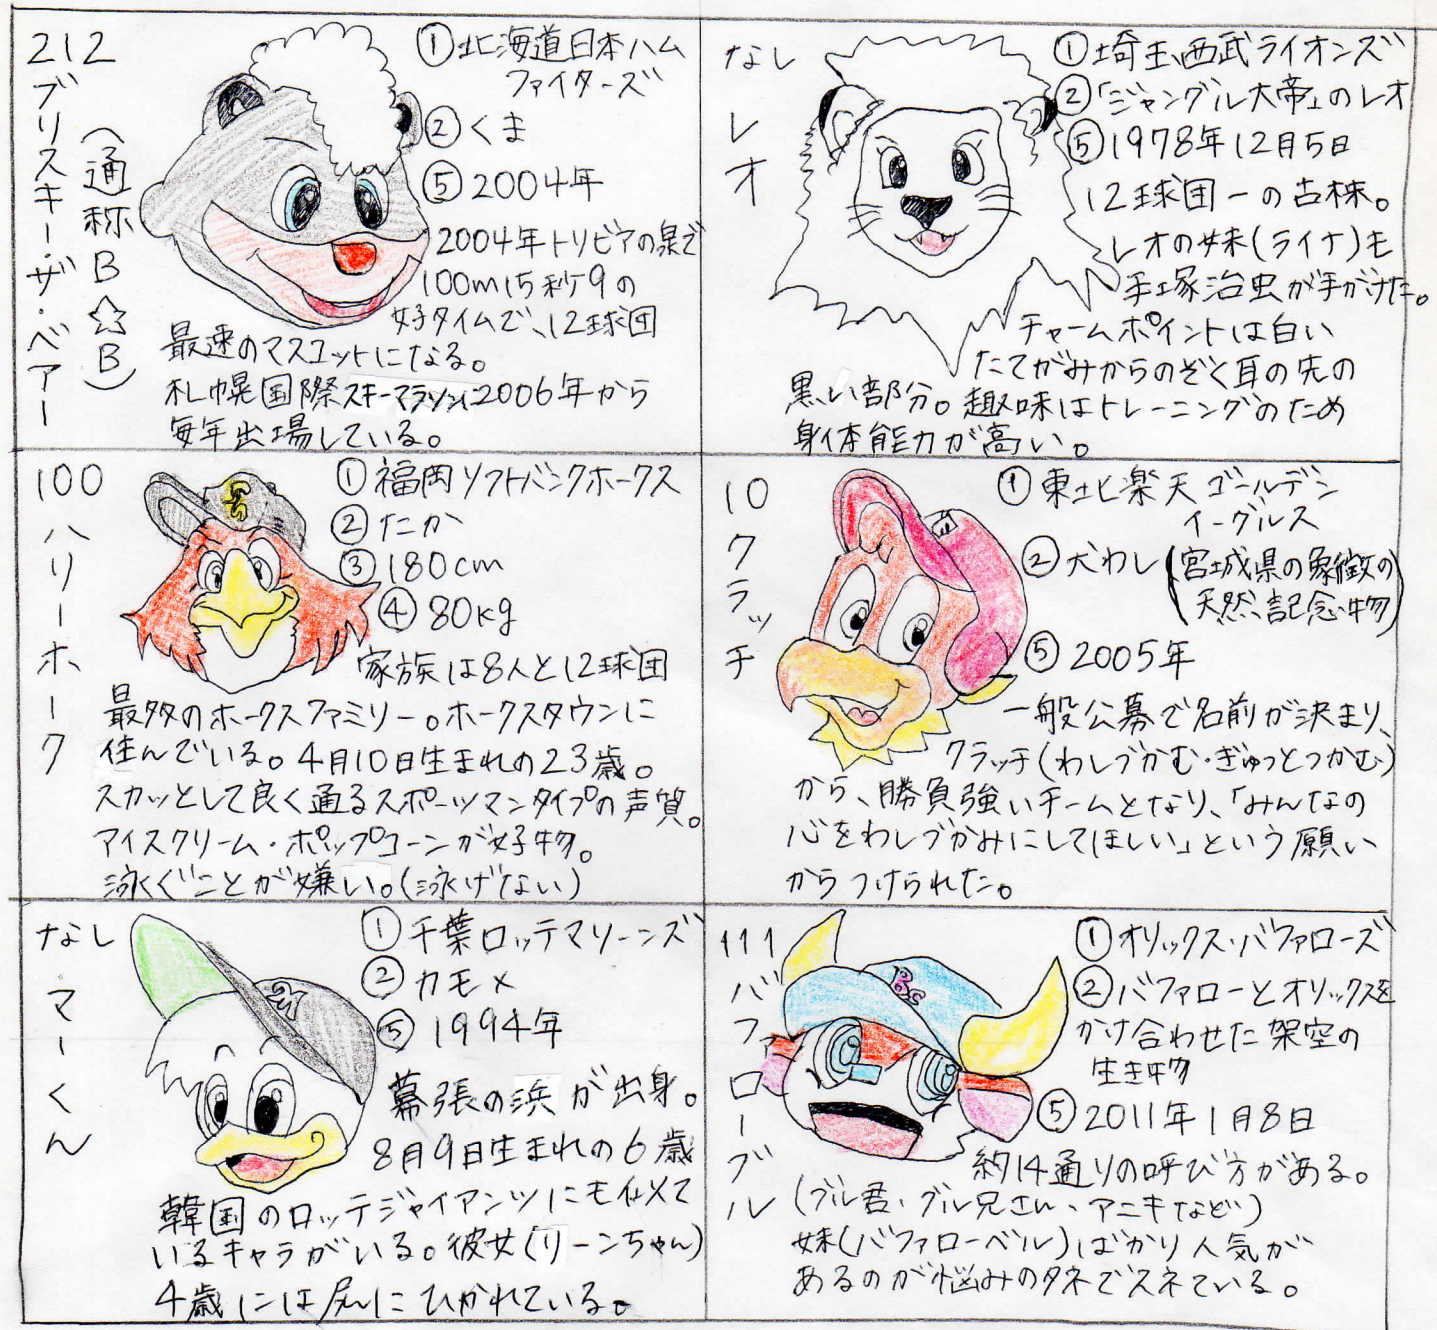 212
ブリスキー・ザ・ベアー
(通称B☆B)
①北海道日本ハム
ファイターズ
②くま
⑤2004年
2004年トリビアの泉で
100m15秒9の
好タイムで、12球団
最速のマスコットになる。
札幌国際スキーマラソンに2006年から
毎年出場している。
なし
レオ
①埼玉西武ライオンズ
②「ジャングル大帝」のレオ
⑤1978年12月5日
12球団一の古株。
レオの妹(ライナ)も
手塚治虫が手がけた。
チャームポイントは白い
たてがみからのぞく耳の先の
黒い部分。趣味はトレーニングのため
身体能力が高い。
100
ハリーホーク
①福岡ソフトバンクホークス
②たか
③180cm
④80kg
家族は8人と12球団
最多のホークスファミリー。ホークスタウンに
住んでいる。4月10日生まれの23歳。
スカッとして良く通るスポーツマンタイプの声質。
アイスクリーム・ポップコーンが好物。
泳ぐことが嫌い。(泳げない)
10
クラッチ
①東北楽天ゴールデン
イーグルス
②犬わし(宮城県の象徴の
天然記念物)
⑤2005年
一般公募で名前が決まり、
クラッチ(わしづかむ・ぎゅっとつかむ)
から、勝負強いチームとなり、「みんなの
心をわしづかみにしてほしい」という願い
からつけられた。
なし
マーくん
①千葉ロッテマリーンズ
②カモメ
⑤1994年
幕張の浜が出身。
8月9日生まれの6歳
韓国のロッテジャイアンツにも似て
いるキャラがいる。彼女(リーンちゃん)
4歳には尻にひかれている。
111
バファローブル
①オリックス・バファローズ
②バファローとオリックスを
かけ合わせた架空の
生き物
⑤2011年1月8日
約14通りの呼び方がある。
(ブル君、ブル兄さん、アニキなど)
妹(バファローベル)ばかり人気が
あるのが悩みのタネでスネている。
Bs